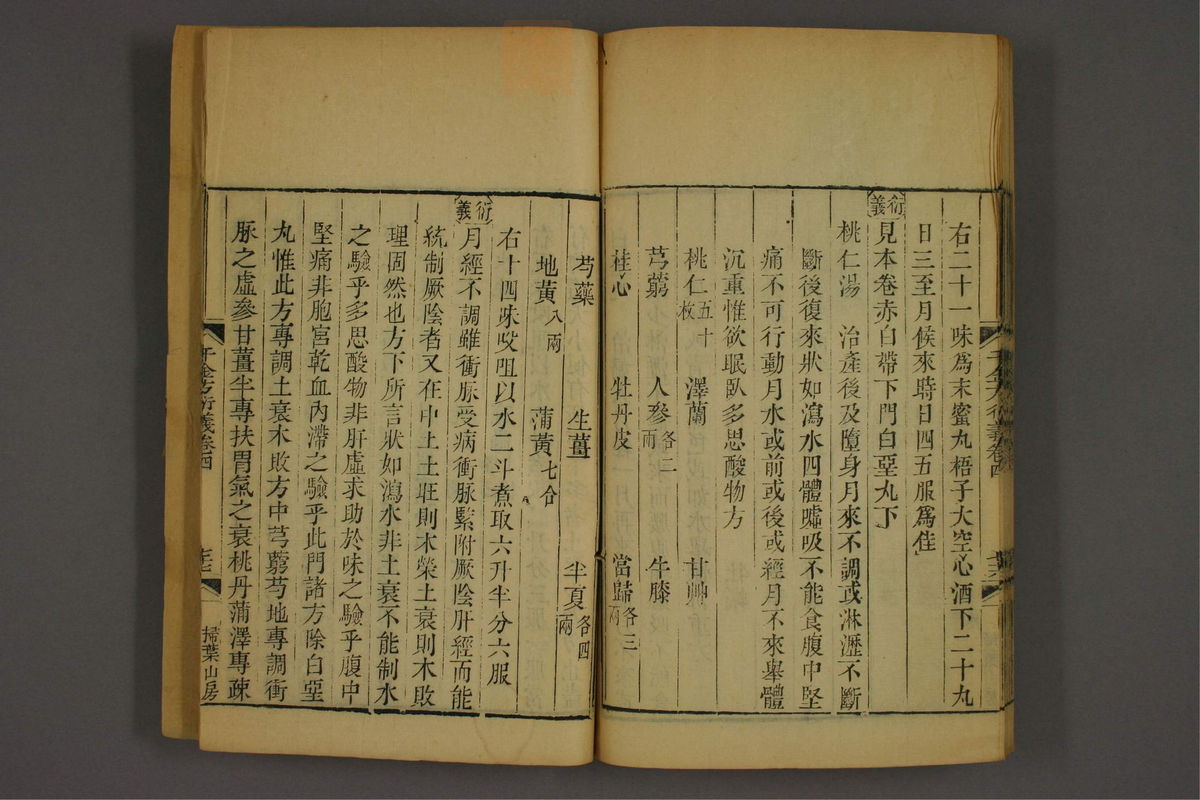 右二十一味爲末蜜丸梧子大空心酒下二十丸
日三至月候來時日四五服爲佳
衍義
見本卷赤白帶下門白堊丸下
桃仁湯 治產後及墮身月來不調或淋瀝不斷
斷後復來狀如瀉水四體噓吸不能食腹中堅
痛不可行動月水或前或後或經月不來舉體
沉重惟欲眠臥多思酸物方
桃仁五十枚 澤蘭 甘艸
芎藭 人參各二兩 牛膝
桂心 牡丹皮 當歸各三兩
芍藥 生薑 半夏各四兩
地黃八兩 蒲黃七合
右十四味㕮咀以水二斗煮取六升半分六服
衍義
月經不調雖衝脉受病衝脉緊附厥陰肝經而能
統制厥陰者又在中土土旺則木榮土衰則木敗
理固然也方下所言狀如瀉水非土衰不能制水
之驗乎多思酸物非肝虛求助於味之驗乎腹中
堅痛非胞宮乾血內滯之驗乎此門諸方除白堊
丸惟此方專調土衰木敗方中芎藭芍地專調衝
脉之虛參甘薑半專扶胃氣之衰桃丹蒲澤專疎
千金方衍義卷四
掃葉山房